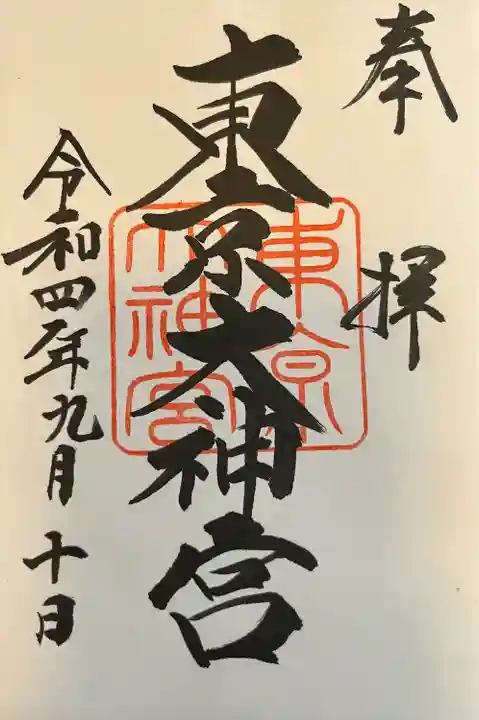 奉拝
東京大神宮
東京大神宮
令和四年九月十日